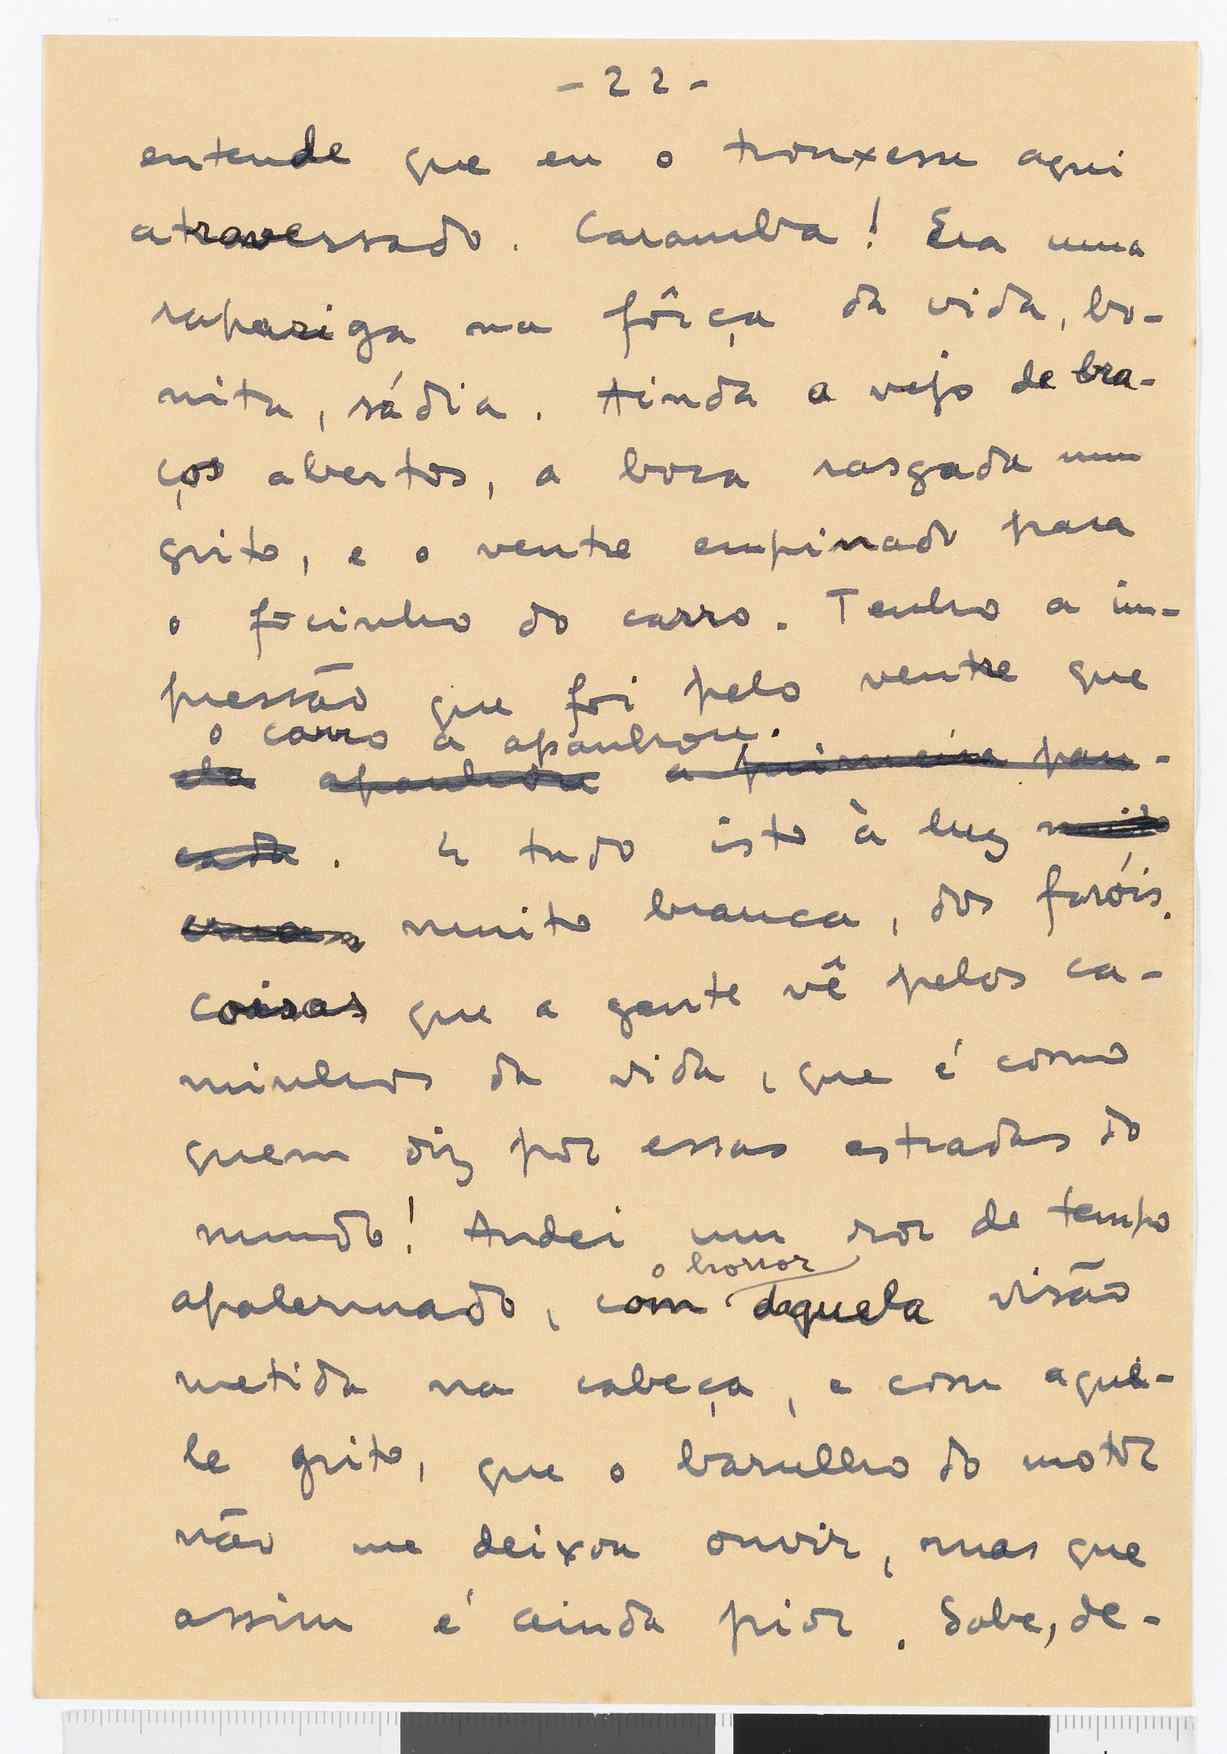 - 22 -
entende que eu o trouxesse aqui
atravessado. Caramba! Era uma
rapariga na fôrça da vida, bo-
nita, sádia. Ainda a vejo de bra-
ços abertos, a boca rasgada num
grito, e o ventre empinado para
o focinho do carro. Tenho a im-
pressão que foi pelo ventre que
o carro a apanhou.
ela apanhou a primeira pan-
cada. E tudo isto à luz muito
crua, muito branca, dos faróis.
coisas que a gente vê pelos ca-
minhos da vida, que é como
quem diz por essas estradas do
mundo! Andei um ror de tempo
o horror
apalermado, com daquela visão
metida na cabeça, e com aque-
le grito, que o barulho do motor
não me deixou ouvir, mas que
assim é ainda pior. Sabe, de-